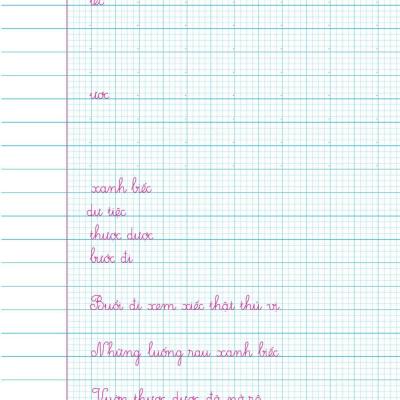 iêc
ươc
xanh biếc
dự tiệc
thược dược
bước đi
Buổi đi xem xiếc thật thú vị.
Những luống rau xanh biếc.
Vườn thược dược đã nở rộ.